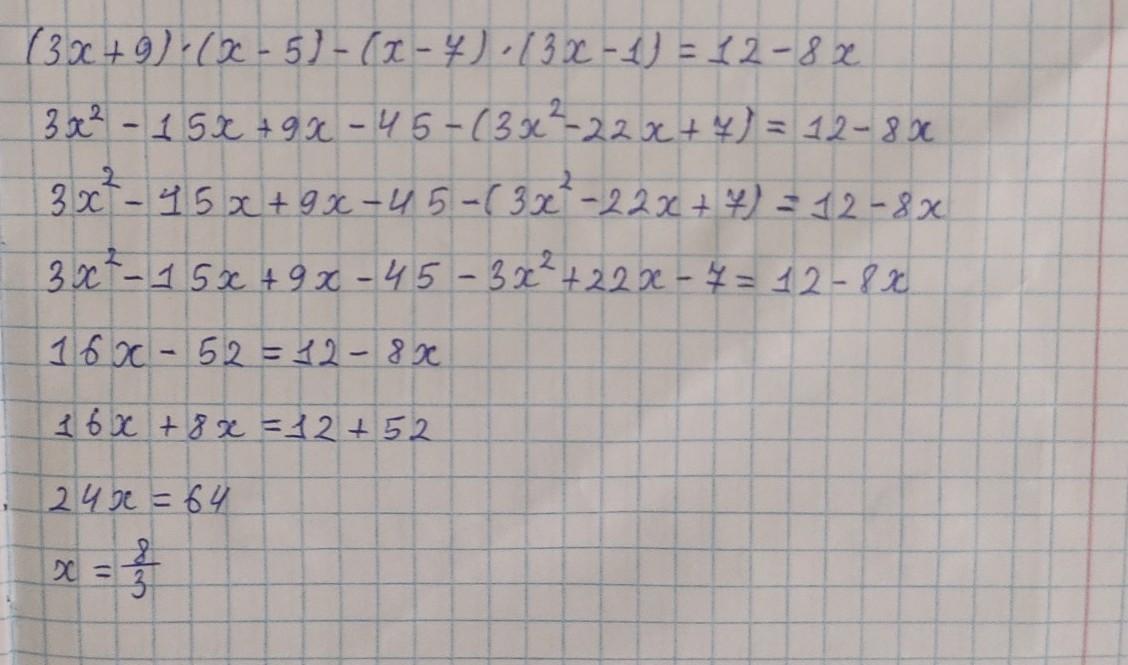 (3x+9)·(x-5)-(x-7)·(3x-1)=12-8x
3x²-15x+9x-45-(3x²-22x+7)=12-8x
3x²-15x+9x-45-(3x²-22x+7)=12-8x
3x²-15x+9x-45-3x²+22x-7=12-8x
16x-52=12-8x
16x+8x=12+52
24x=64
x=8/3